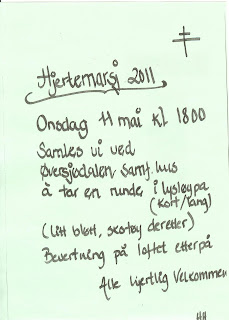 Hjertemarsj 2011
Onsdag 11 mai kl 1800
Samles vi ved
Øversjødalen Samf.hus
å tar en runde i lysløypa
(kort/lang)
(litt blött, skotøy deretter)
Bevertning på loftet etterpå
Alle hjertlig Velkommen
HH